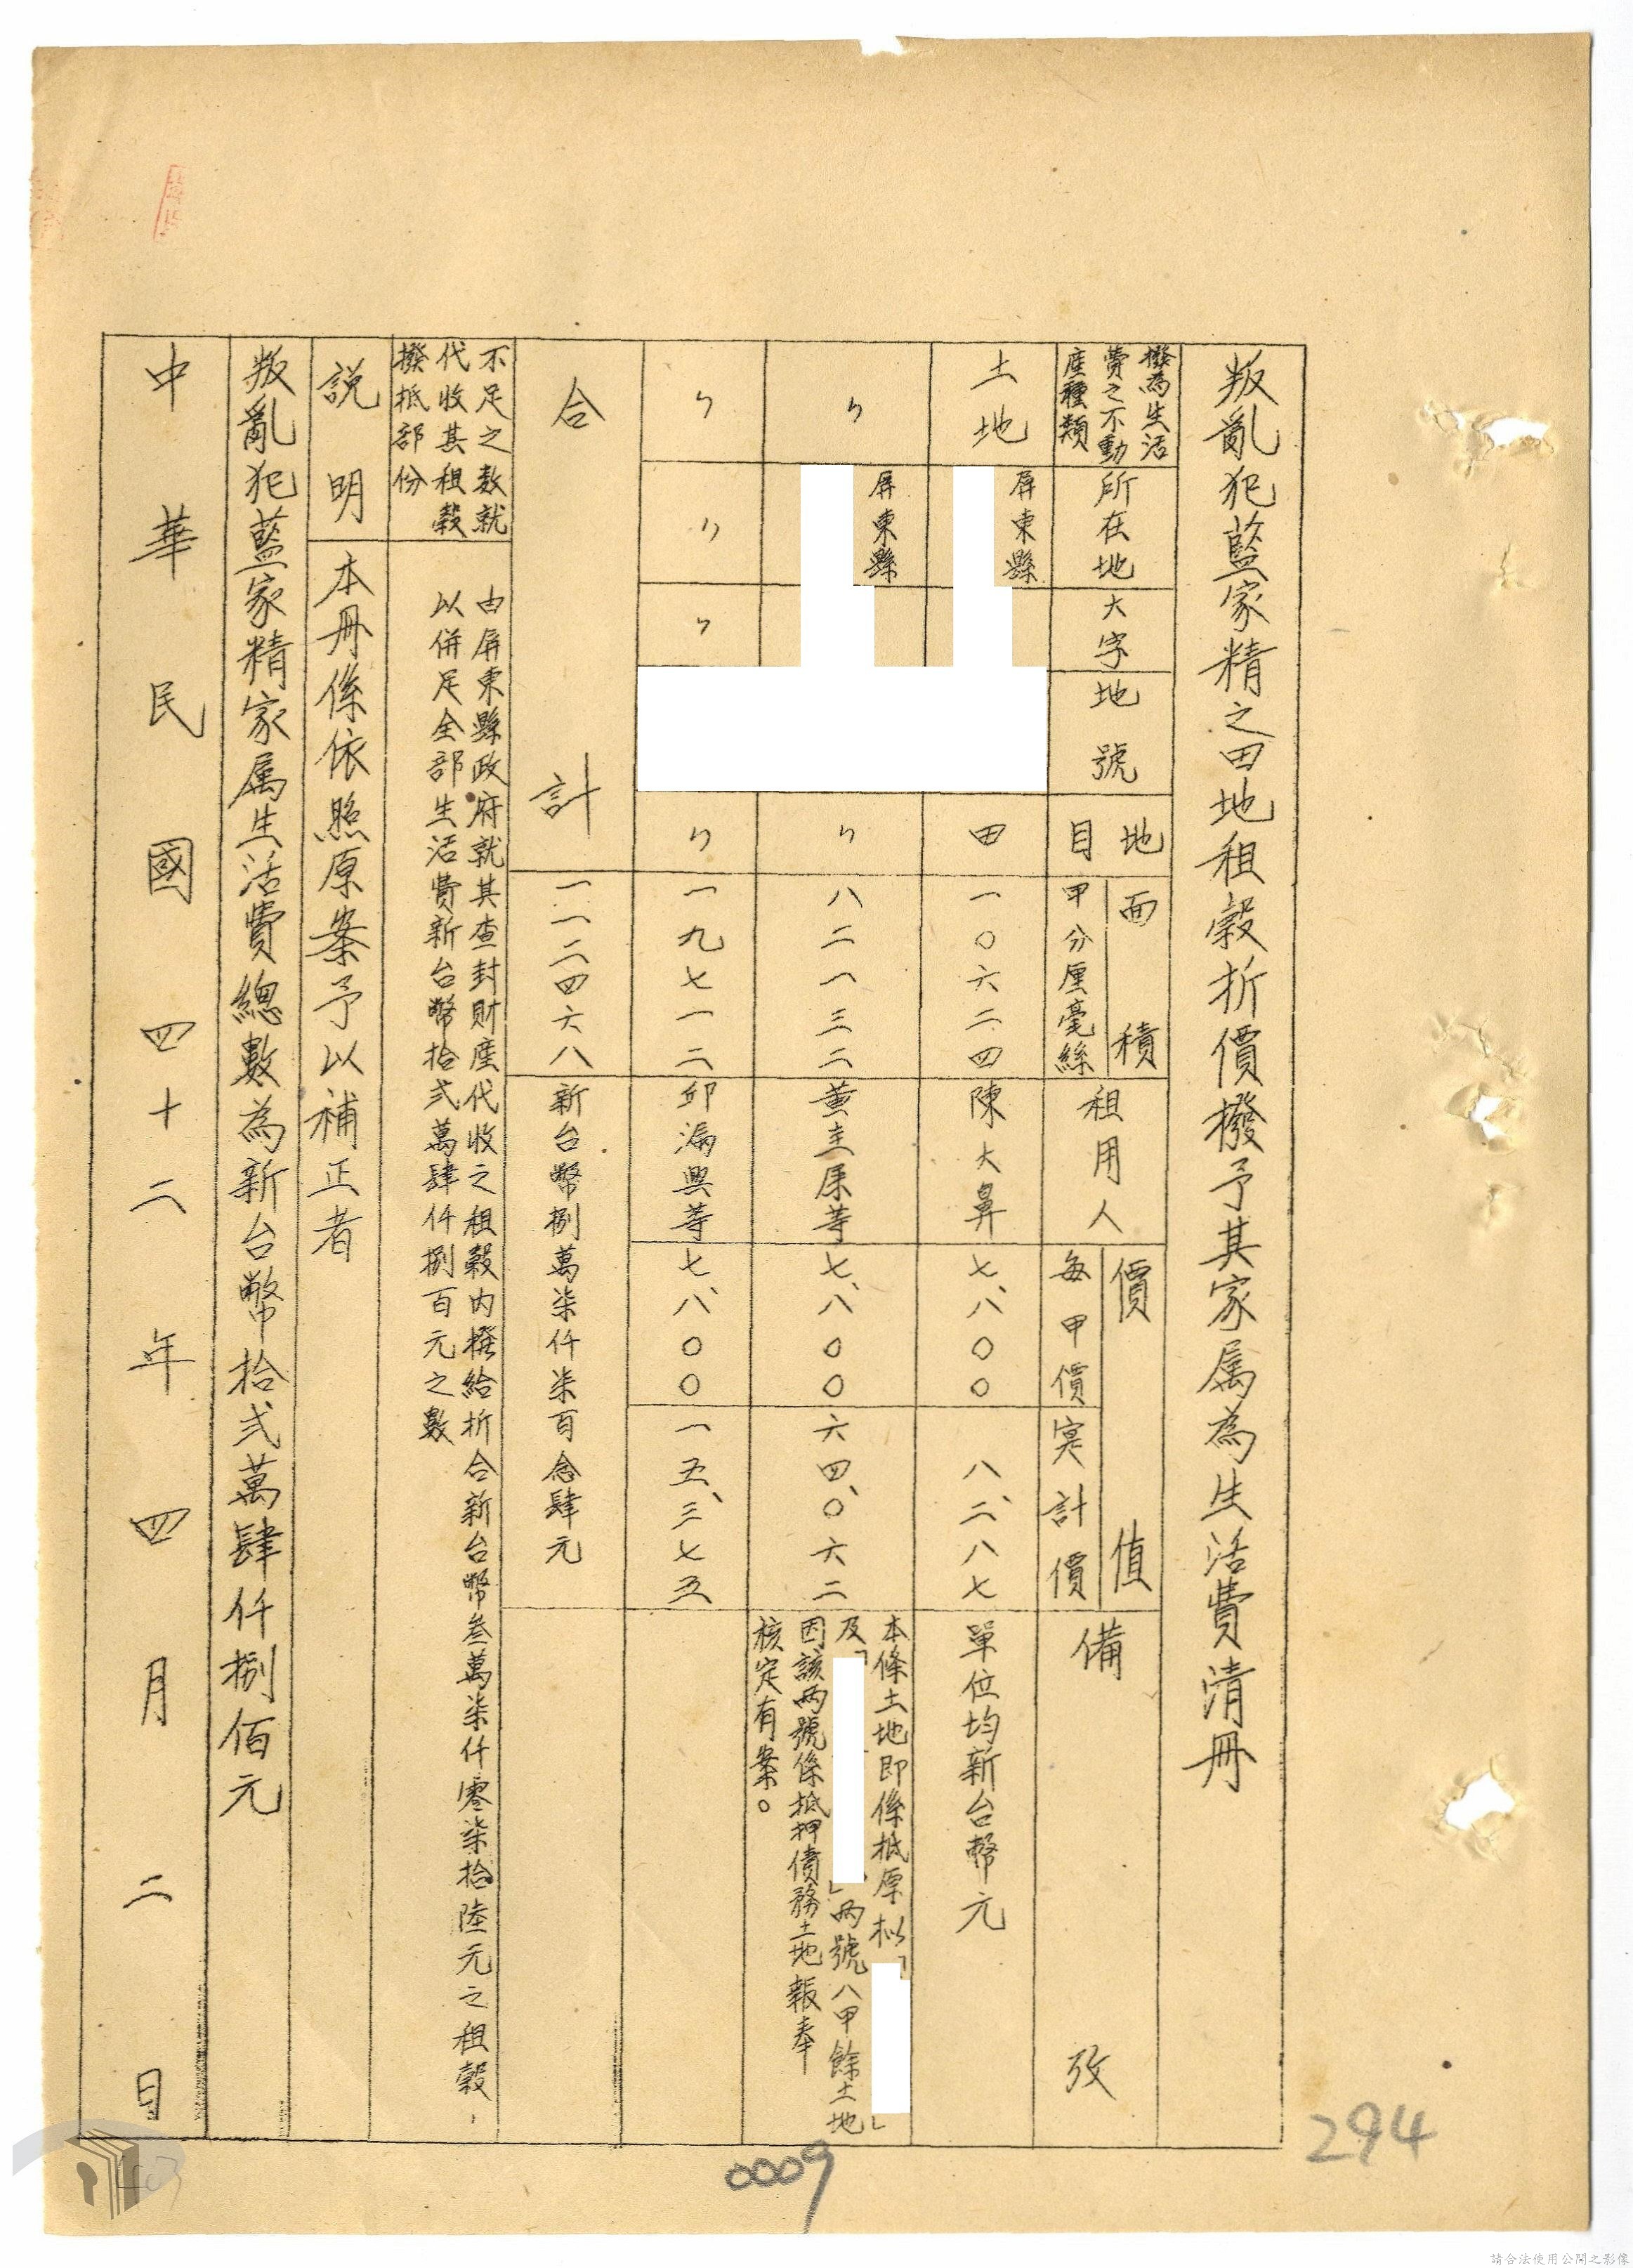 叛亂犯藍家精之田地租穀折價撥予其家属為生活費清冊
撥為生活
費之不動
產種類
所在地
大字
地號
地目
面積
甲分厘毫絲
租用人
價值
每甲價
实計價
備攷
土地
屏東縣
田
一〇六二四
陳大鼻
七、八〇〇
八、二八七
單位均新台幣元
〃
屏東縣
〃
八二一三二
等
七、八〇〇
六四、〇六二
本條土地即係抵原拟「
」
及「
」兩號八甲餘土地
因該兩號係抵押債務土地報奉
核定有案。
〃
〃
〃
〃
一九七一二
邱漏興等
七、八〇〇
一五、三七五
合計
一一二四六八
新台幣捌萬柒仟柒百念肆元
不足之数就
代收其租穀
撥抵部份
由屏東縣政府就其查封財產代收之租穀內撥給折合新台幣叁萬柒仟零柒拾陸元之租穀，
以併足全部生活費新台幣拾弍萬肆仟捌百元之數
說明
本冊係依照原案予以補正者
叛亂犯藍家精家属生活費總數為新台幣拾弍萬肆仟捌佰元
中華民國四十二年四月二日
294
0009
請合法使用公開之影像